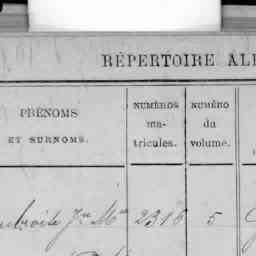 RÉPERTOIRE AL
PRÉNOMS
ET SURNOMS.
NUMÉROS
ma-
tricules.
NUMÉRO
du
volume.
Jn Mie 2316 5